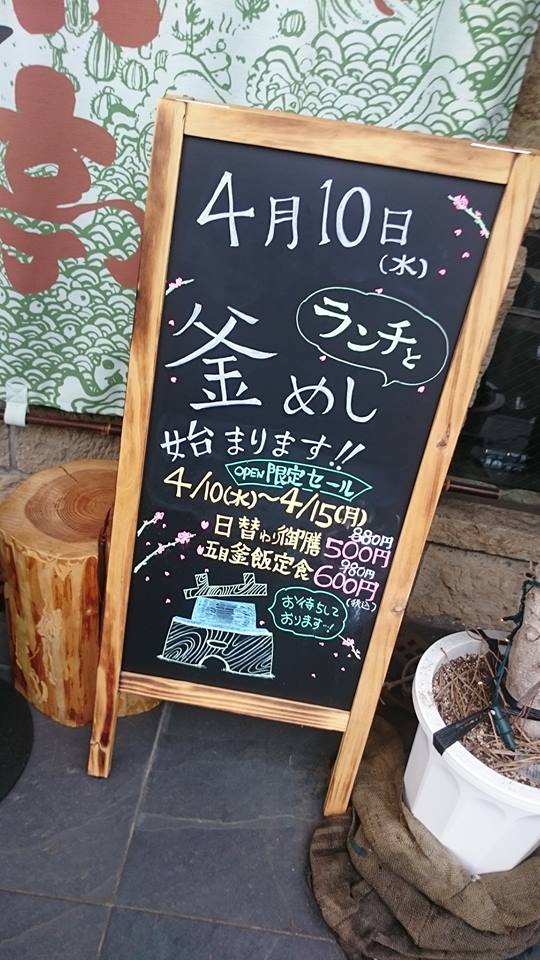 4月10日
(水)
ランチと
釜めし
始まります!!
OPEN 限定セール
4/10(水)～4/15(月)
日替わり御膳 880円 500円
五目釜飯定食 980円 600円
(税込)
お待ちして
おります…!